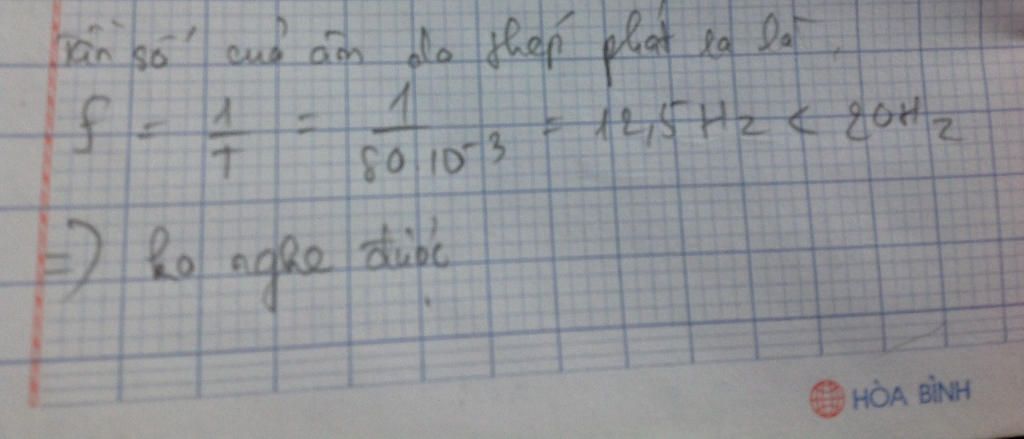 Tần số của âm do thép phát ra là
f = 1/T = 1/80.10⁻³ = 12,5 Hz < 20Hz
=> ko nghe được.
HÒA BÌNH